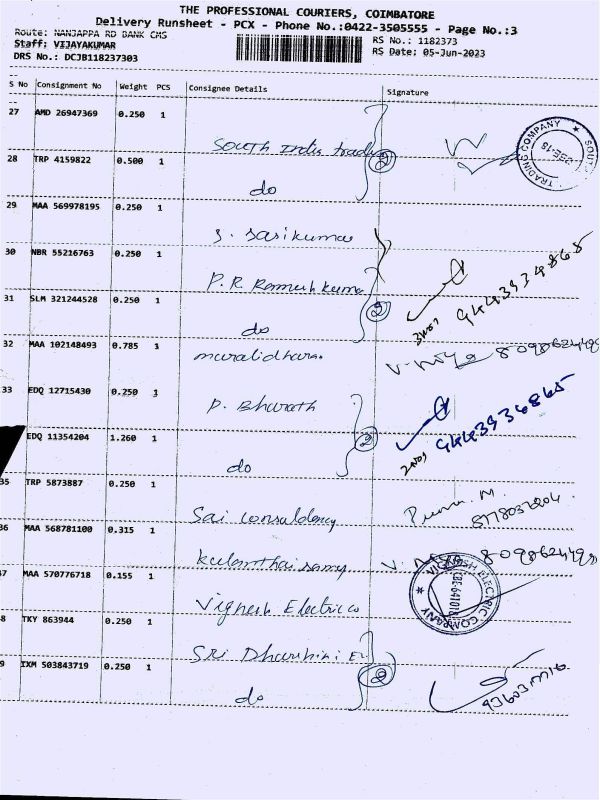 THE PROFESSIONAL COURIERS, COIMBATORE
Delivery Runsheet - PCX - Phone No.:0422-3505555 - Page No.:3
Route: NANJAPPA RD BANK CMS
RS No.: 1182373
Staff: VIJAYAKUMAR
RS Date: 05-Jun-2023
DRS No.: DCJB118237303
S No Consignment No Weight PCS Consignee Details Signature
27 AMD 26947369 0.250 1
South India
TRADING COMPANY
28 TRP 4159822 0.500 1
2
do
29 MAA 569978195 0.250 1
S. Sasikumar
30 NBR 55216763 0.250 1
P. R. Ramesh kumar
9443934865
31 SLM 321244528 0.250 1
2
do
3nos
32 MAA 102148493 0.785 1
muralidharan
33 EDQ 12715430 0.250 1
P. Bharath
9443936865
EDQ 11354204 1.260 1
2
do
2nos
35 TRP 5873887 0.250 1
Sai Consuldancy
36 MAA 568781100 0.315 1
Kulanthaisamy
7 MAA 570776718 0.155 1
Vignesh Electric
VIGNESH ELECTRIC COMPANY
8 TKY 863944 0.250 1
SRi Dharshini
9 IXM 503843719 0.250 1
2
do